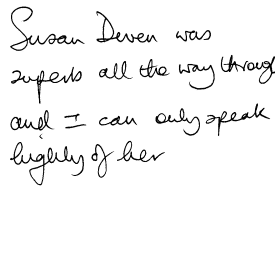 Susan Deven was
superb all the way through
and I can only speak
highly of her